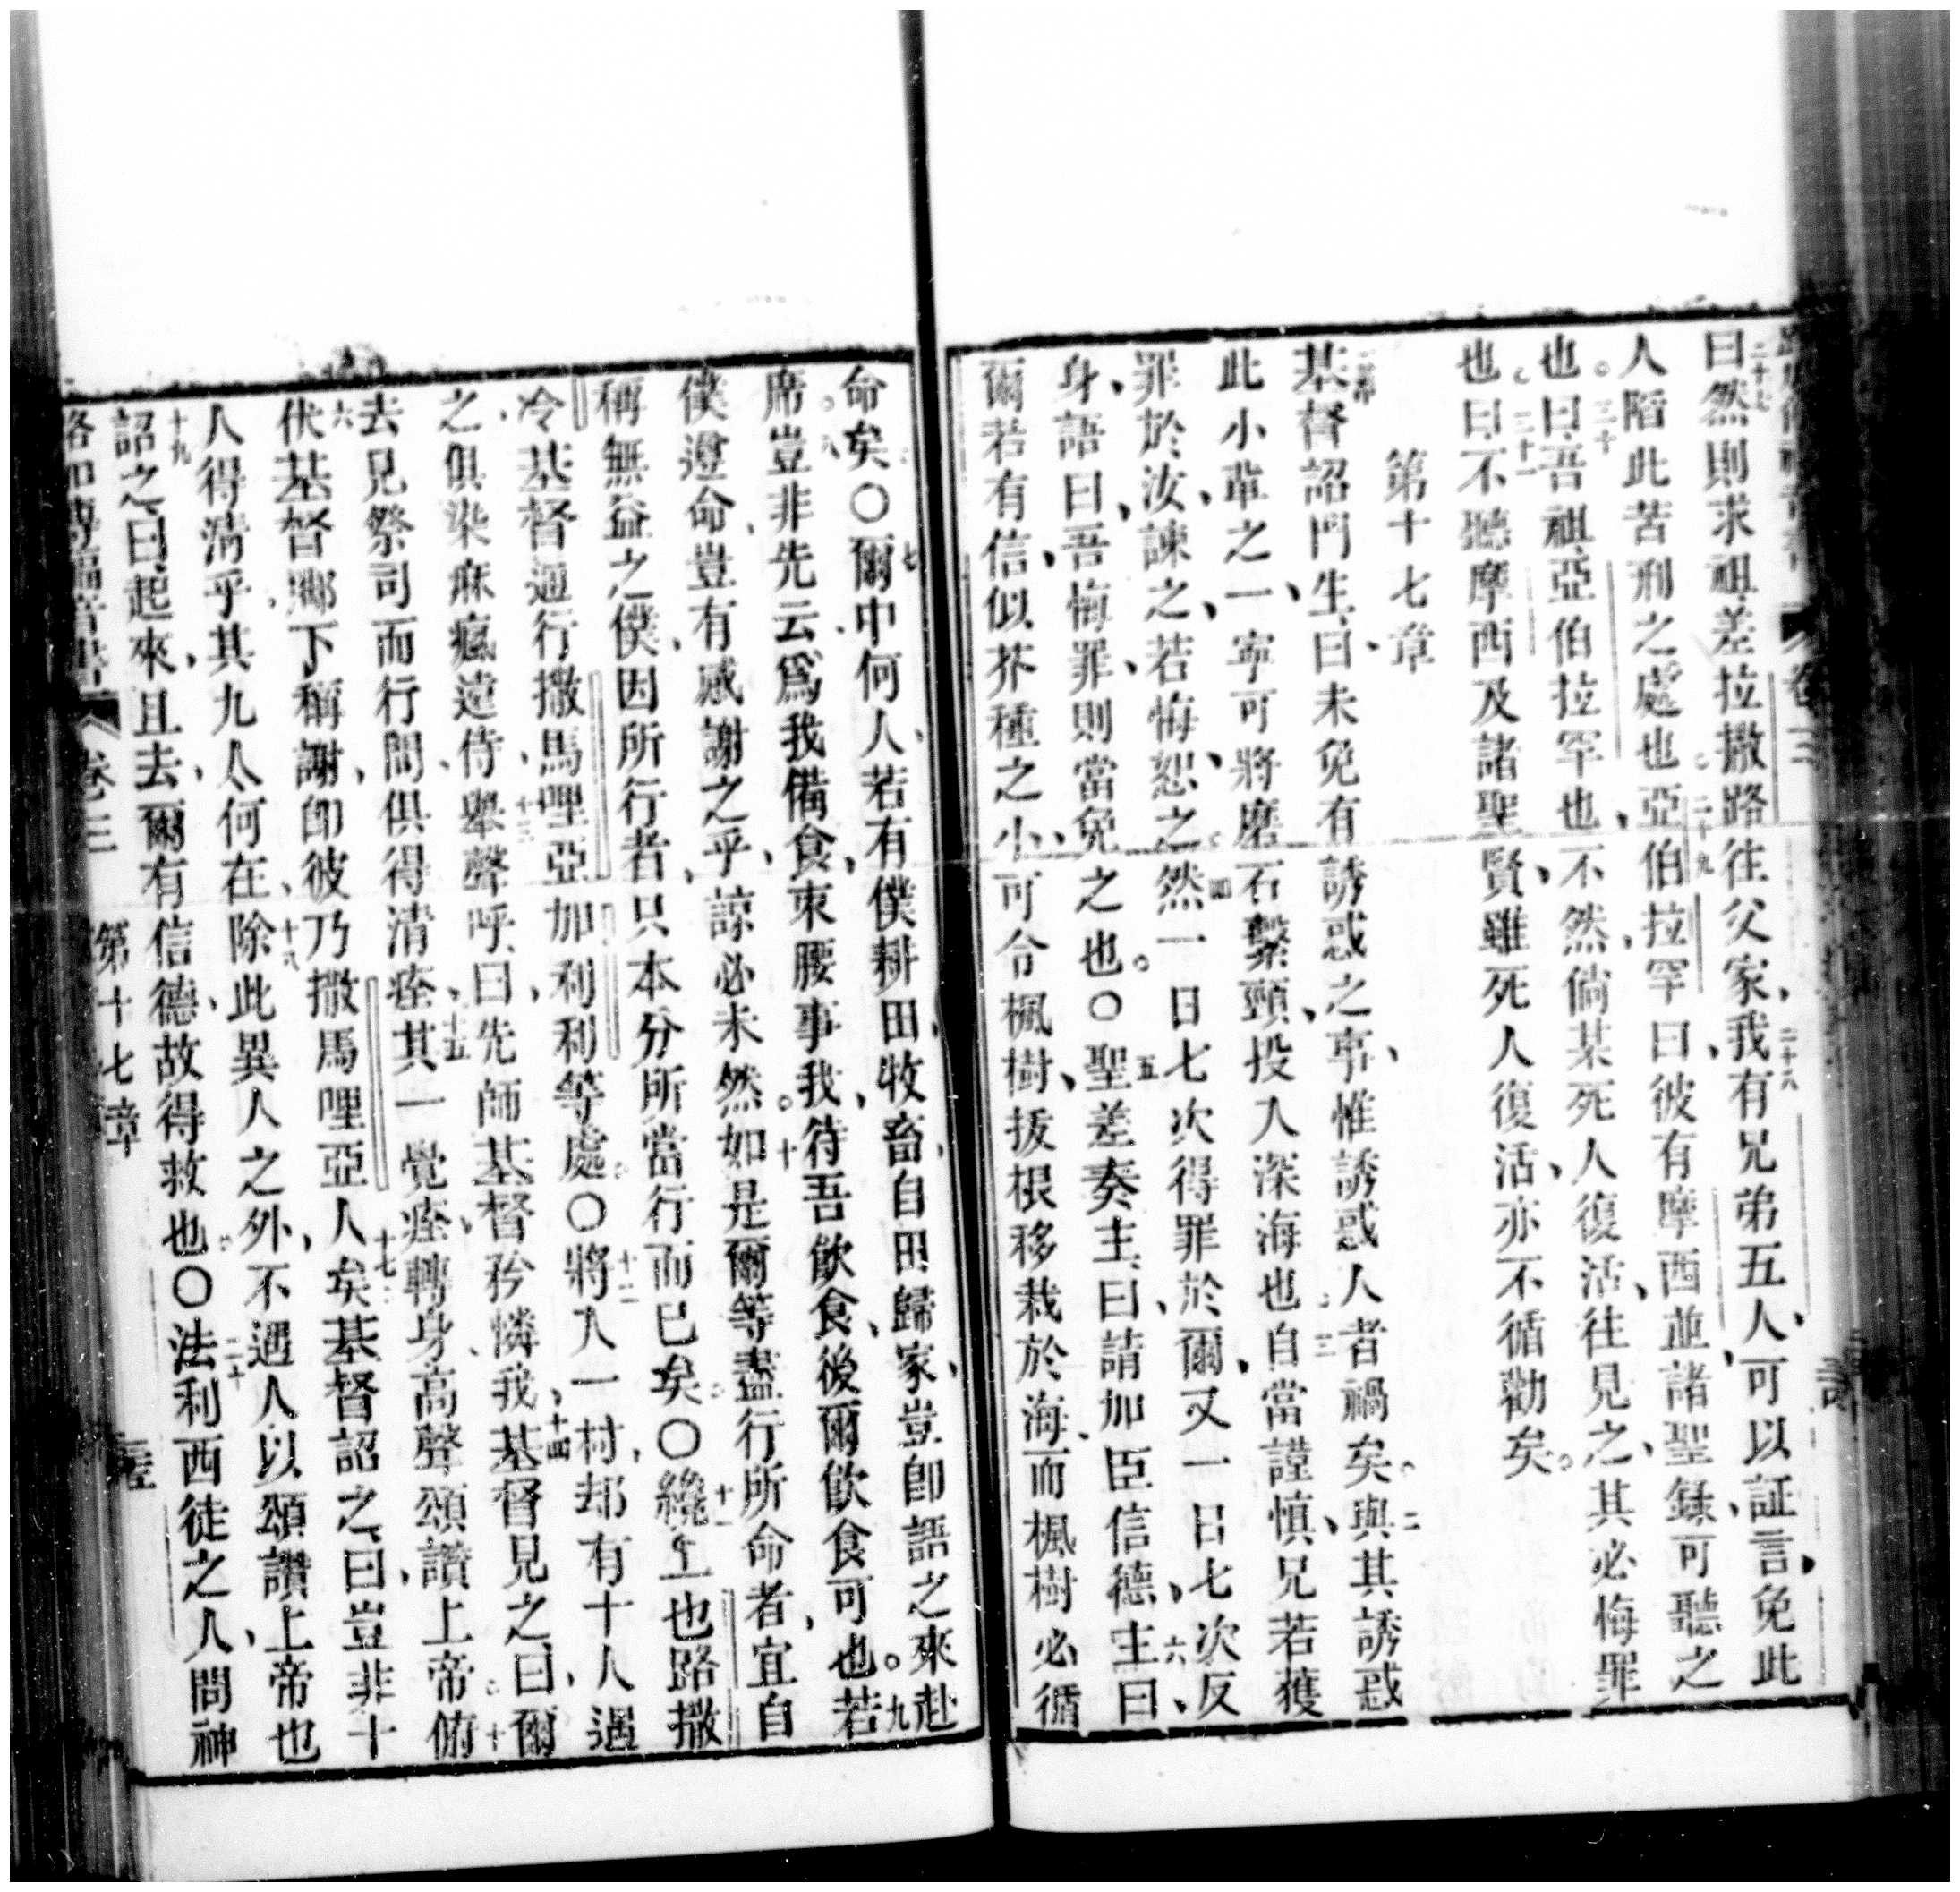 卷三
二十七曰然則求祖差拉撒路往父家二十八我有兄弟五人可以証言免此
人陷此苦刑之處也二十九亞伯拉罕曰彼有摩西並諸聖錄可聽之
也三十曰吾祖亞伯拉罕也不然倘某死人復活往見之其必悔罪
也三十一曰不聽摩西及諸聖賢雖死人復活亦不循勸矣
第十七章
基督詔門生曰未免有誘惑之事惟誘惑人者禍矣二與其誘惑
此小輩之一寧可將磨石繫頸投入深海也三自當謹慎兄若獲
罪於汝諫之若悔恕之四然一日七次得罪於爾又一日七次反
身語曰吾悔罪則當免之也○五聖差奏主曰請加臣信德六主曰
爾若有信似芥種之小可令楓樹拔根移栽於海而楓樹必循
命矣○七爾中何人若有僕耕田牧畜自田歸家豈卽語之來赴
席八豈非先云爲我備食束腰事我待吾飲食後爾飲食可也九若
僕遵命豈有感謝之乎諒必未然十如是爾等盡行所命者宜自
稱無益之僕因所行者只本分所當行而已矣○十一纔上也路撒
冷基督通行撒馬哩亞加利利等處○十二將入一村却有十人遇
之俱染痳瘋遠侍十三舉聲呼曰先師基督矜憐我十四基督見之曰爾
去見祭司而行間俱得清痊十五其一覺痊轉身高聲頌讚上帝十六俯
伏基督腳下稱謝卽彼乃撒馬哩亞人矣十七基督詔之曰豈非十
人得清乎其九人何在十八除此異人之外不遇人以頌讚上帝也
十九詔之曰起來且去爾有信德故得救也○二十法利西徒之人問神
路加傳福音書 卷三 第十七章